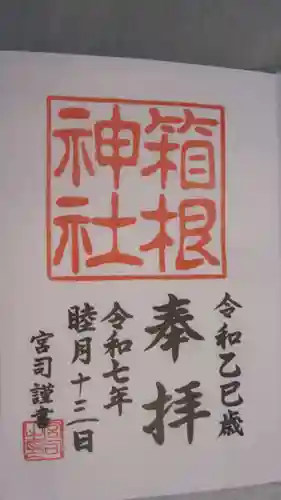 箱根
神社
令和乙巳歳
奉拝
令和七年
睦月十二日
宮司謹書